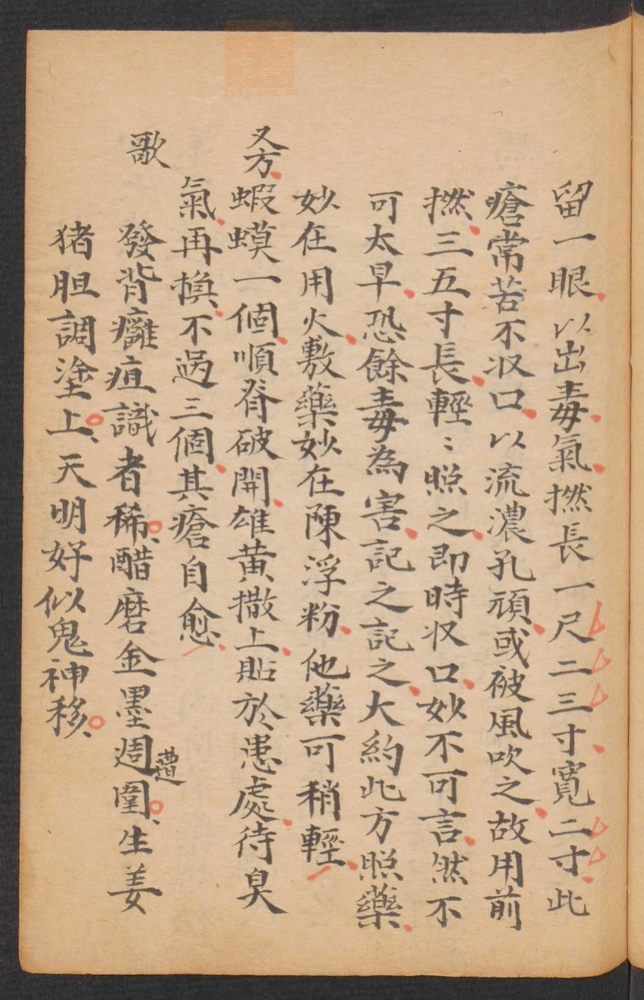 留一眼以出毒氣撚長一尺二三寸寬二寸此
瘡常若不収口以流濃孔頑或被風吹之故用前
撚三五寸長輕：照之即時収口妙不可言然不
可太早恐餘毒為害記之記之大約此方照藥
妙在用火敷藥妙在陳浮粉他藥可稍輕
又方蝦蟆一個順脊破開雄黃撒上貼於患處待臭
氣再換不過三個其瘡自愈
歌
發背癰疽識者稀醋磨金墨週圍生姜
猪胆調塗上天明好似鬼神移